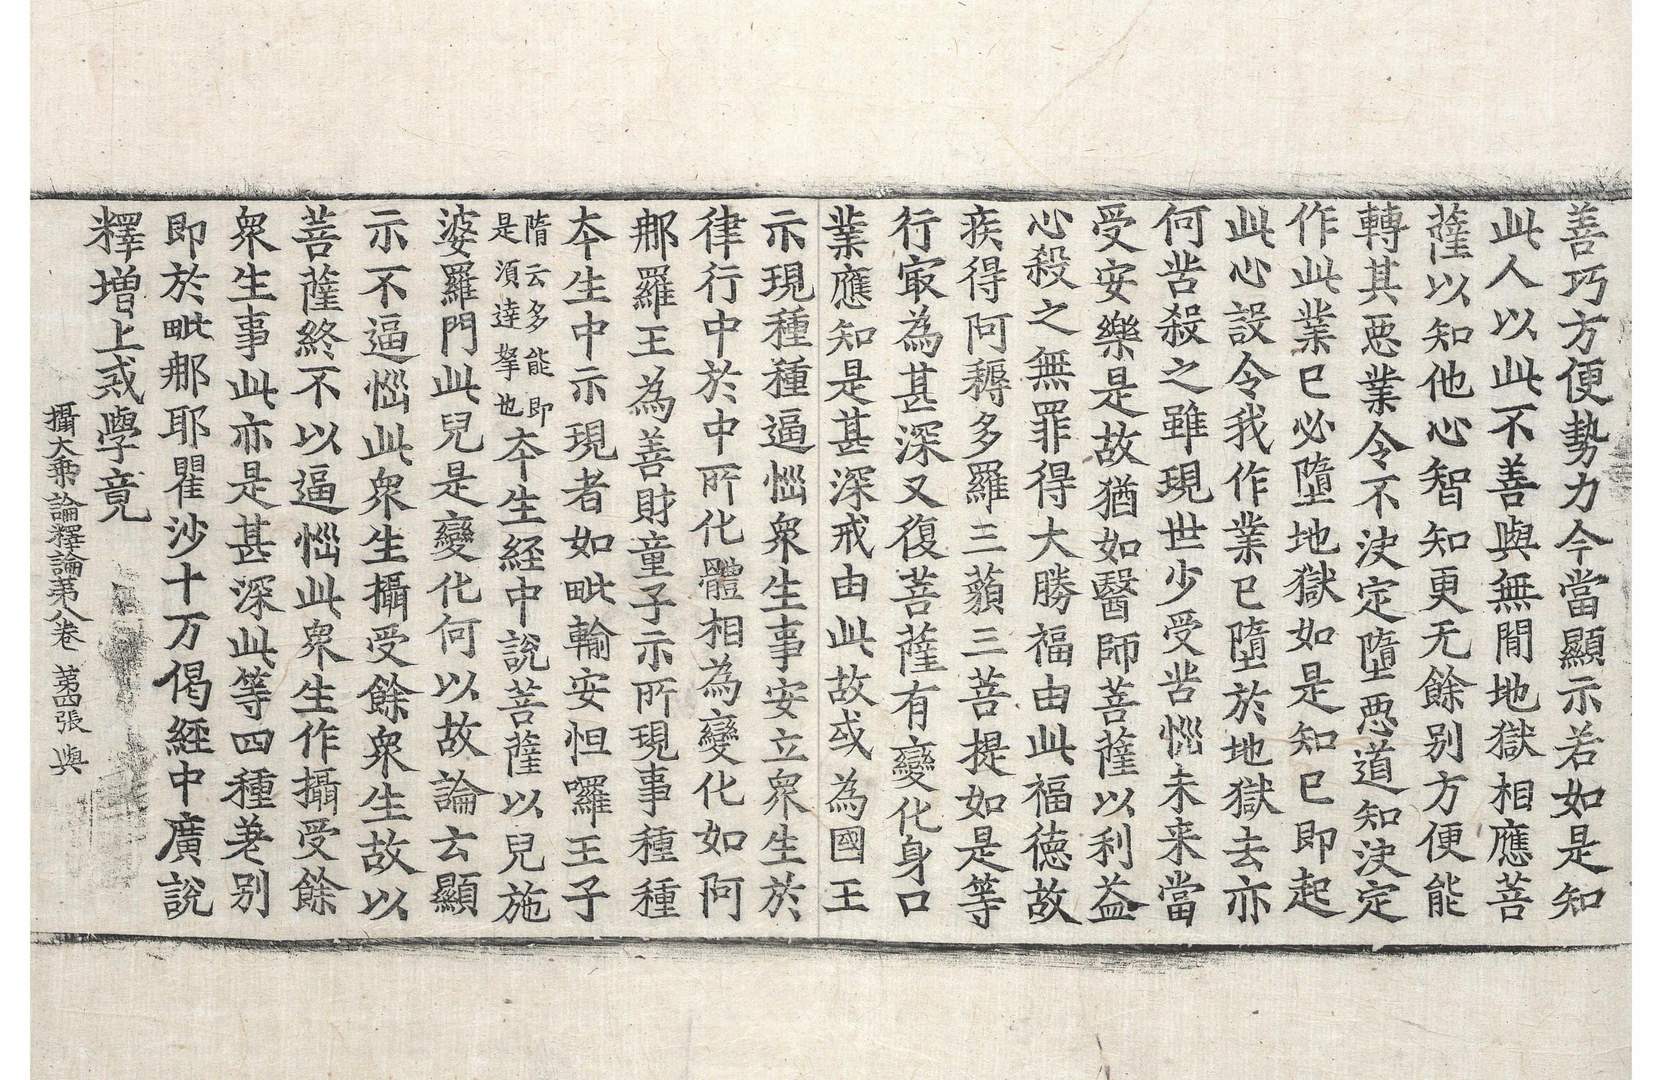 善巧方便勢力今當顯示若如是知
此人以此不善與無間地獄相應菩
薩以知他心智知更无餘别方便能
轉其惡業令不決定墮惡道知決定
作此業已必墮地獄如是知已即起
此心設令我作業已墮於地獄去亦
何苦殺之雖現世少受苦惱未来當
受安樂是故猶如醫師菩薩以利益
心殺之無罪得大勝福由此福德故
疾得阿耨多羅三藐三菩提如是等
行㝡為甚深又復菩薩有變化身口
業應知是甚深戒由此故或為國王
示現種種逼惱衆生事安立衆生於
律行中於中所化體相為變化如阿
那羅王為善財童子示所現事種種
夲生中示現者如毗輸安怛囉王子
隋云多能即
是須達拏也夲生經中說菩薩以兒施
婆羅門此兒是變化何以故論云顯
示不逼惱此衆生攝受餘衆生故以
菩薩終不以逼惱此衆生作攝受餘
衆生事此亦是甚深此等四種差别
即於毗那耶瞿沙十万偈經中廣說
釋增上戒學竟
攝大乘論釋論第八卷 第四張 與